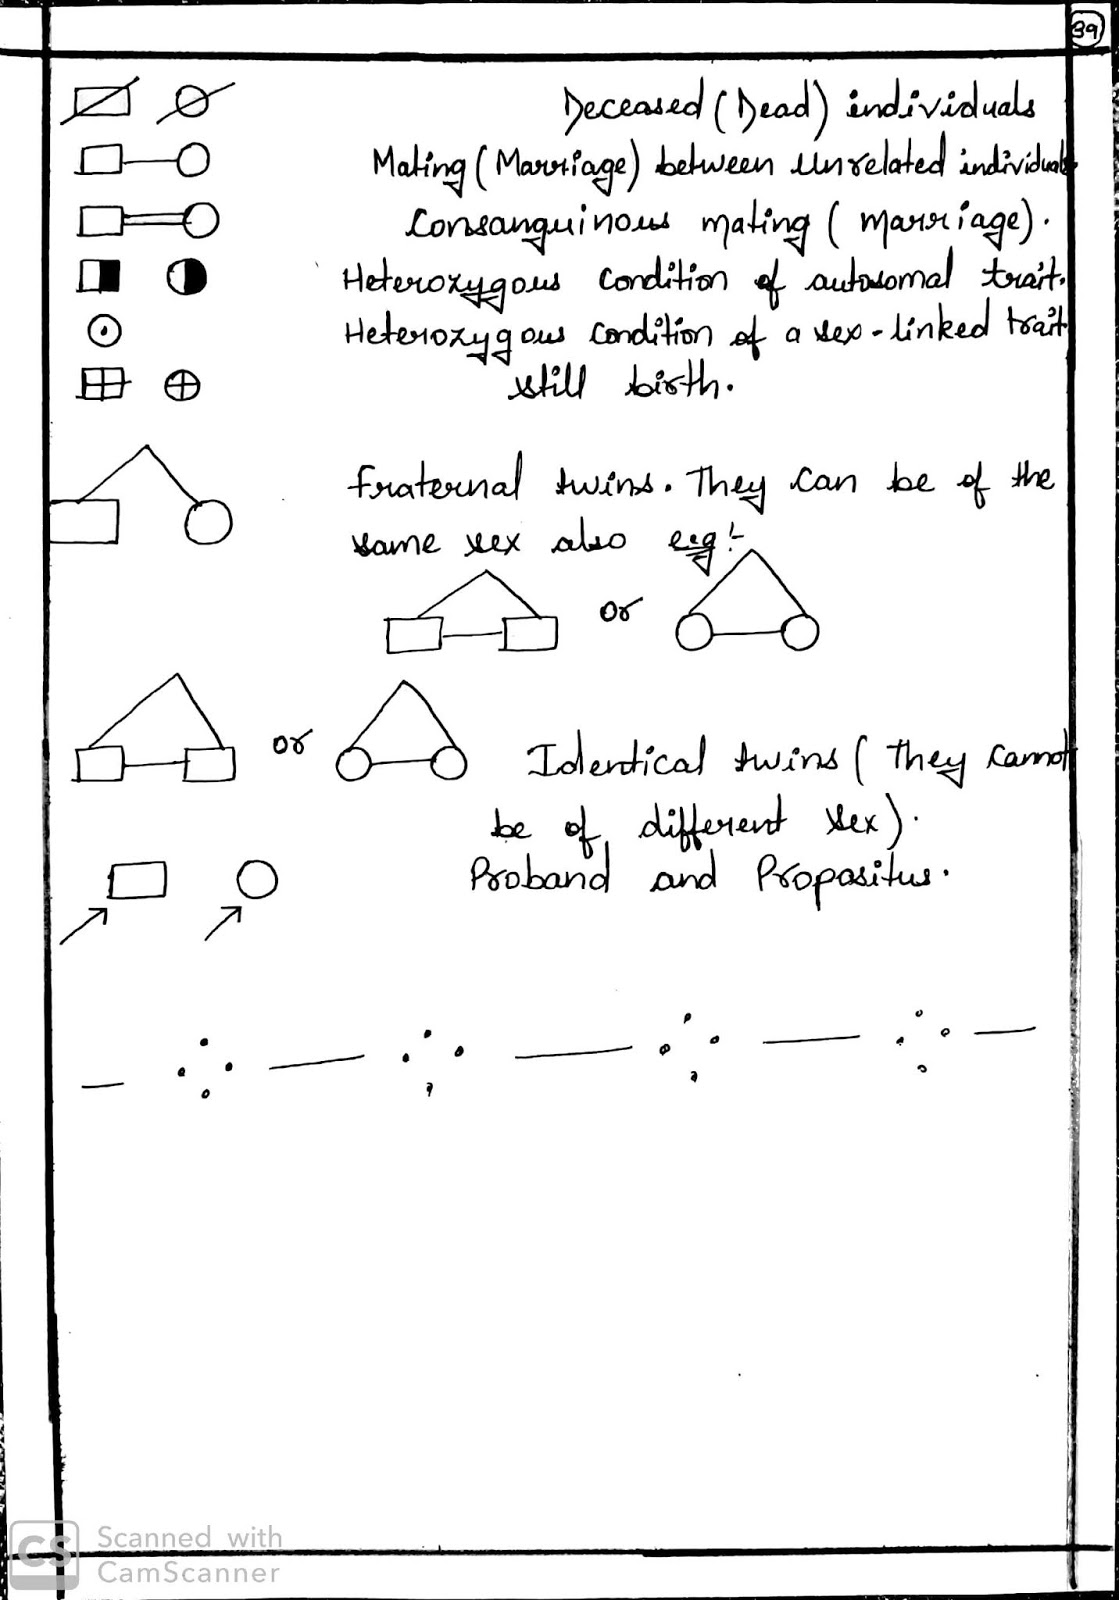 39
Deceased (Dead) individuals
Mating (Marriage) between unrelated individuals
Consanguinous mating (marriage).
Heterozygous condition of autosomal trait.
Heterozygous condition of a sex-linked trait
still birth.
Fraternal twins. They can be of the
same sex also eg:-
or
or
Identical twins (they cannot
be of different sex).
Proband and Propositus.
CS Scanned with
CamScanner